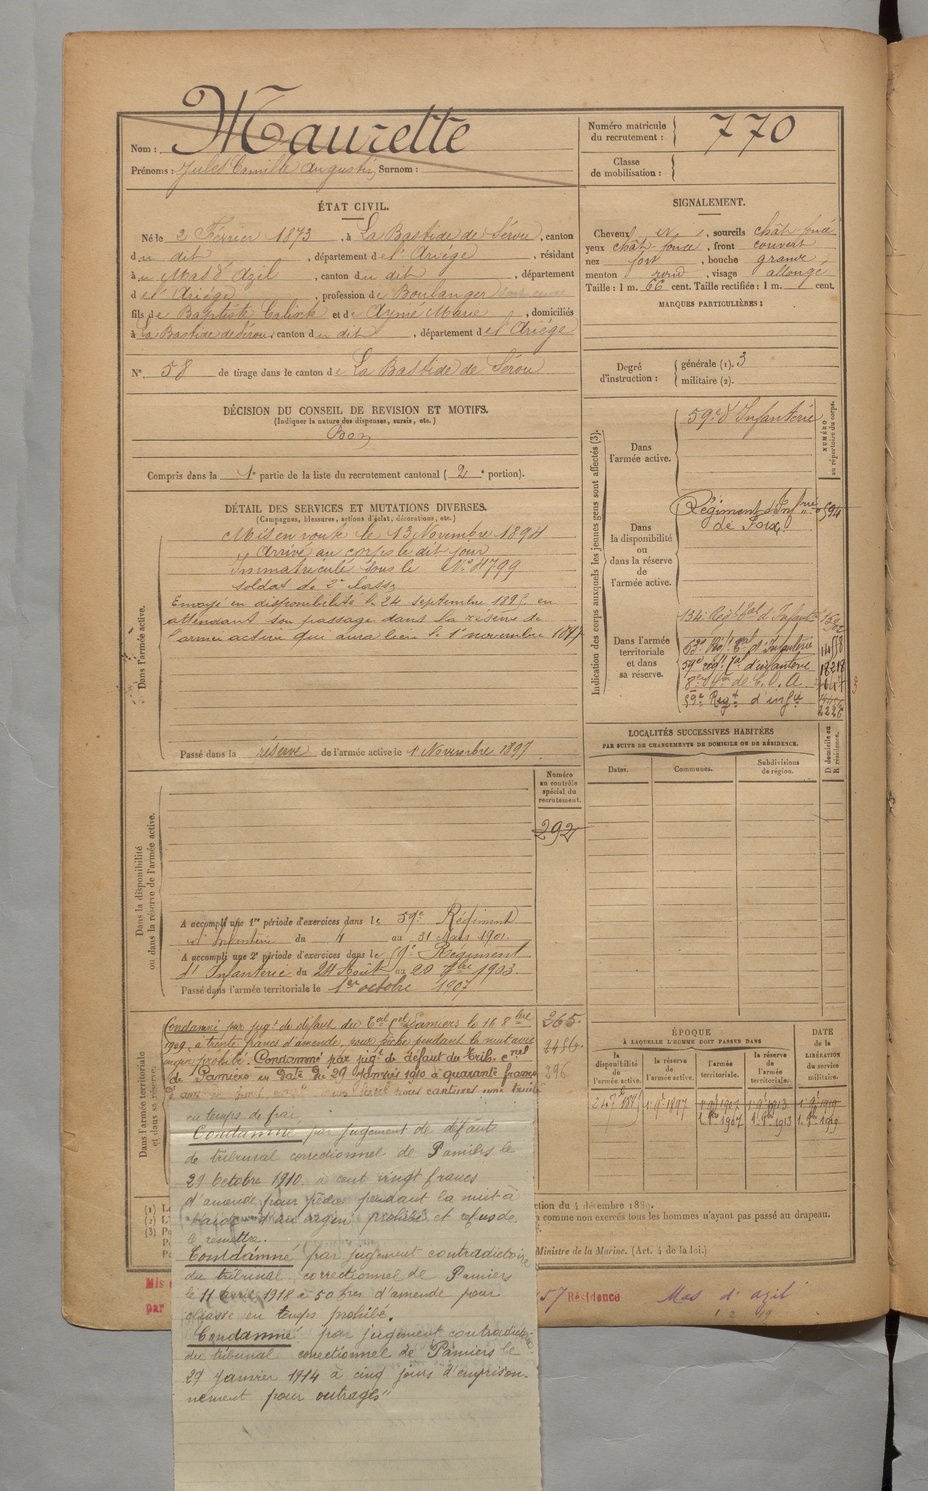 Nom : Maurette
Prénoms : Jules Camille Augustin, Surnom :
Numéro matricule du recrutement : 770
Classe de mobilisation :
ÉTAT CIVIL.
Né le 2 Février 1873, à La Bastide de Sérou, canton
du dit, département de l'Ariège, résidant
à u Mas d'Azil, canton du dit, département
d e l'Ariège, profession de Boulanger
fils de Baptiste et de Aymé Marie, domiciliés
à La Bastide de Sérou, canton du dit, département de l'Ariège
N° 58 de tirage dans le canton de La Bastide de Sérou
SIGNALEMENT.
Cheveux N, sourcils chât foncé
yeux chât foncé, front couvert
nez fort, bouche grande
menton rond, visage allongé
Taille : 1 m. 66 cent. Taille rectifiée : 1 m. cent.
MARQUES PARTICULIÈRES :
Degré d'instruction : générale (1). 3
militaire (2).
DÉCISION DU CONSEIL DE REVISION ET MOTIFS.
(Indiquer la nature des dispenses, sursis, etc.)
Bon
Compris dans la 1e partie de la liste du recrutement cantonal (2e portion).
DÉTAIL DES SERVICES ET MUTATIONS DIVERSES.
(Campagnes, blessures, actions d'éclat, décorations, etc.)
Dans l'armée active.
Mis en route le 13 Novembre 1894
Arrivé au corps le dit jour
Immatriculé sous le N° 4799
soldat de 2e classe
Envoyé en disponibilité le 24 septembre 1895 en
attendant son passage dans la réserve de
l'armée active qui aura lieu le 1er novembre 1897
Passé dans la réserve de l'armée active le 1 Novembre 1897
Indication des corps auxquels les jeunes gens sont affectés (3).
NUMÉRO au répertoire du corps.
Dans l'armée active.
59e d'Infanterie
Dans la disponibilité ou dans la réserve de l'armée active.
Régiment d'Infrie
de Foix
594
Dans l'armée territoriale et dans sa réserve.
134 Rég tal d'Infant
63e Régt tal d'Infanterie
59e régt tal d'infanterie
59e Regt d'infie
LOCALITÉS SUCCESSIVES HABITÉES
PAR SUITE DE CHANGEMENTS DE DOMICILE OU DE RÉSIDENCE.
Dates.
Communes.
Subdivisions de région.
D domicile ou R résidence.
Numéro au contrôle spécial du recrutement.
292
Dans la disponibilité ou dans la réserve de l'armée active.
A accompli une 1re période d'exercices dans le 59e Régiment
d'Infanterie du 4 au 31 Mars 1901.
A accompli une 2e période d'exercices dans le 59e Régiment
d'Infanterie du 24 Août au 20 7bre 1903.
Passé dans l'armée territoriale le 1er octobre 1907
Dans l'armée territoriale et dans sa réserve.
Condamné par jugt de défaut du Tal Cel Pamiers le 11 8bre
1909, à trente francs d'amende, pour pêche pendant la nuit avec
engin prohibé. Condamné par jugt de défaut du Trib. cnel
de Pamiers en date du 29 janvier 1910 à quarante francs
en temps de frai
Condamné par jugement de défaut
de tribunal correctionnel de Pamiers le
29 octobre 1910 à cent vingt francs
d'amende pour pêche pendant la nuit à
l'aide d'un engin prohibé et refus de
le remettre.
Condamné par jugement contradictoire
du tribunal correctionnel de Pamiers
le 11 Avril 1918 à 50 frcs d'amende pour
chasse en temps prohibé.
Condamné par jugement contradictoire
du tribunal correctionnel de Pamiers le
29 janvier 1914 à cinq jours d'emprison-
nement pour outrages"
265
296
ÉPOQUE
À LAQUELLE L'HOMME DOIT PASSER DANS
la disponibilité de l'armée active.
la réserve de l'armée active.
l'armée territoriale.
la réserve de l'armée territoriale.
DATE de la LIBÉRATION du service militaire.
1er 9bre 1897
ction du 4 décembre 1889.
comme non exercés tous les hommes n'ayant pas passé au drapeau.
Ministre de la Marine. (Art. 4 de la loi.)
(1)
(2)
(3)
Mis
par
57 Résidence Mas d'azil